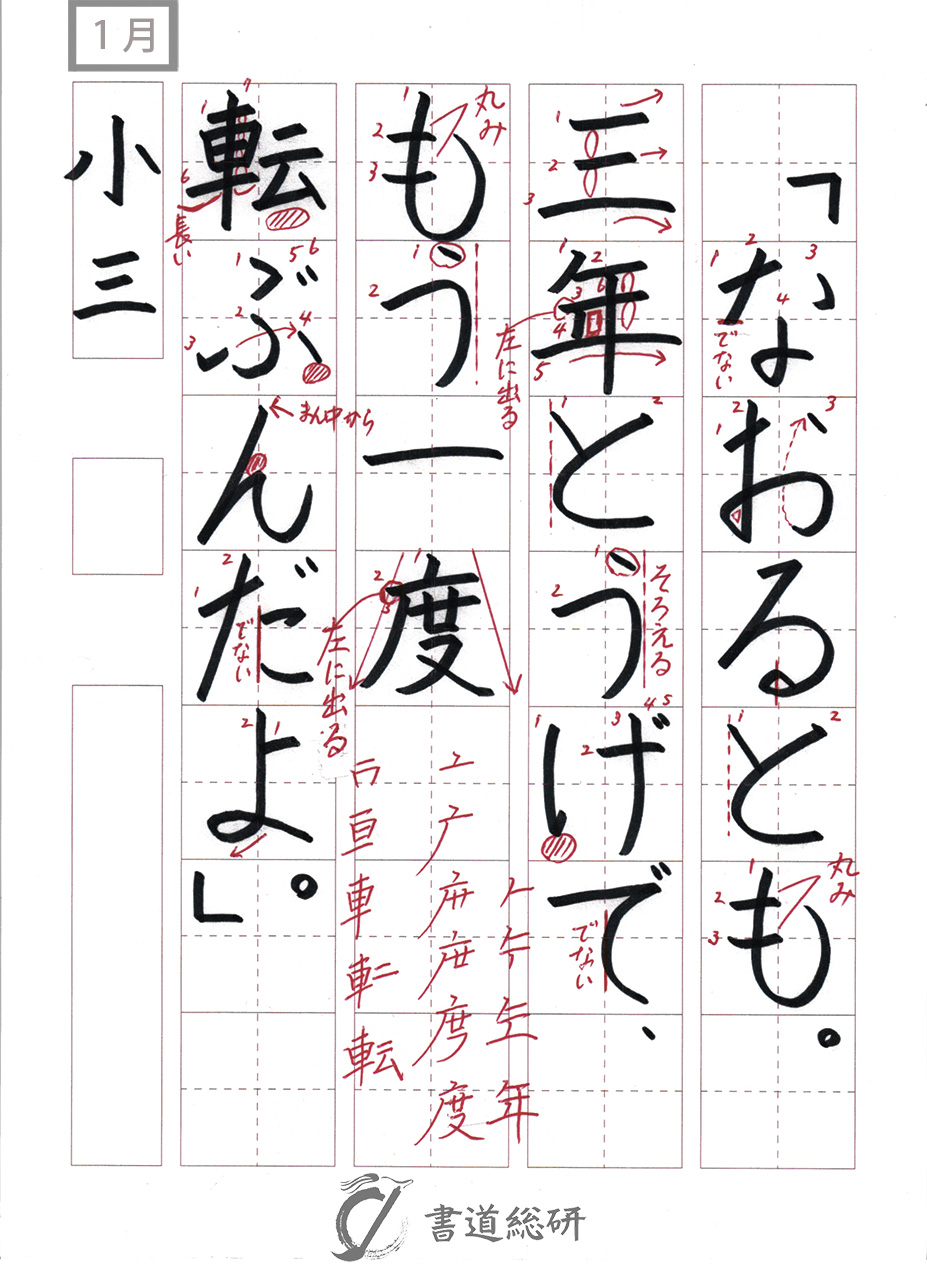 1月
「なおるとも。
三年とうげで、
もう一度
転ぶんだよ。」
小三
丸み
でない
丸み
左に出る
そろえる
でない
長い
まん中から
でない
左に出る
年
度
亘車転
書道総研